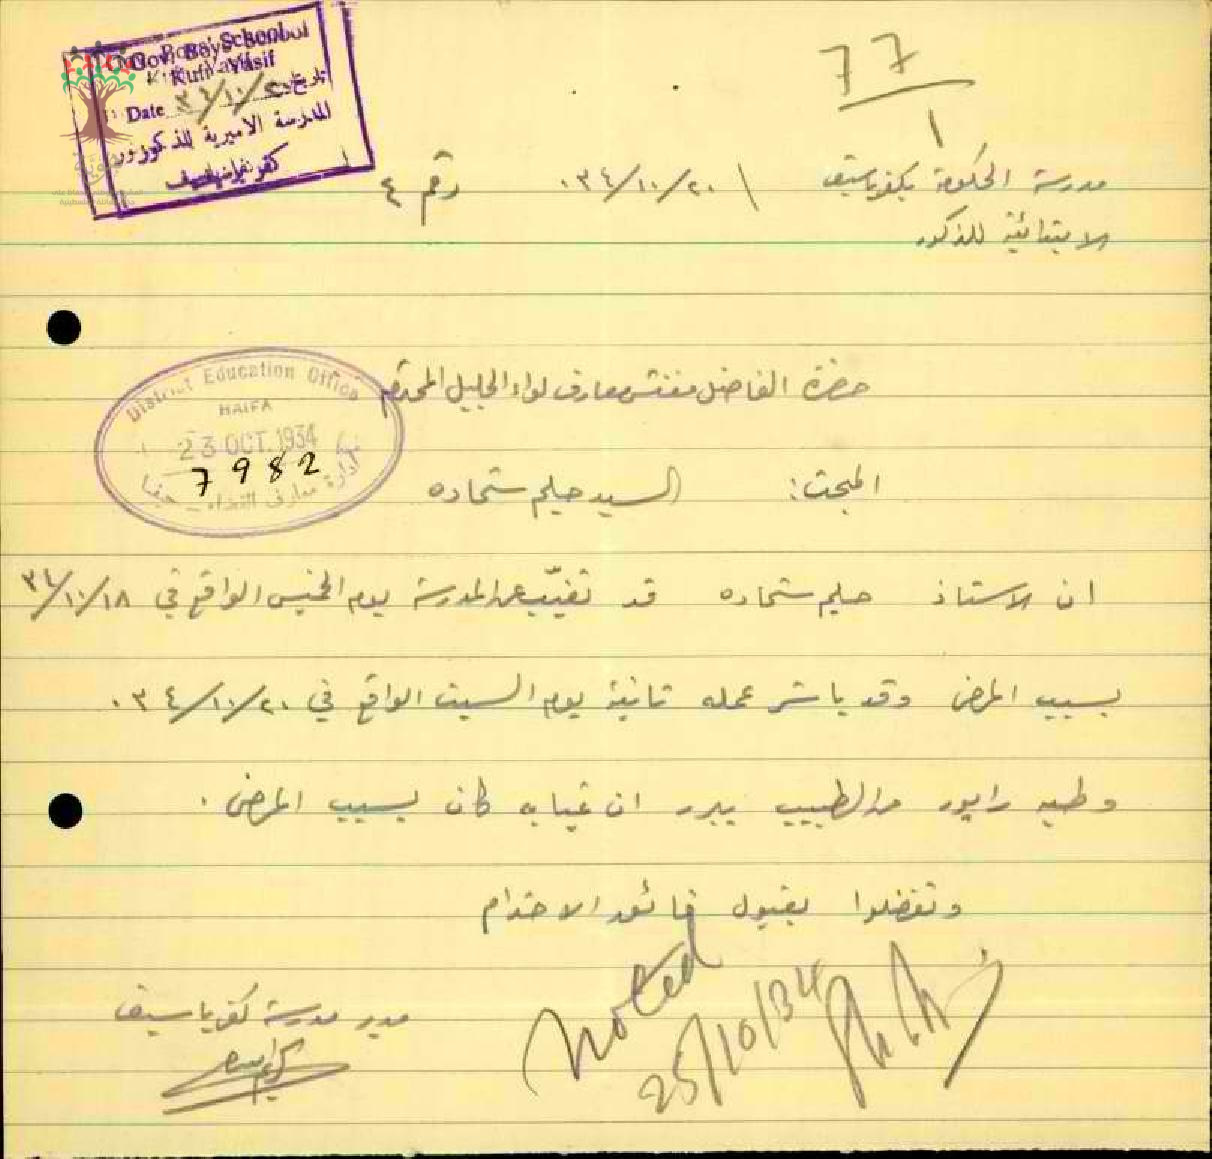 Gov. Boys School
Kufr Yasif
Date ٣٤/١٠/٢٠ تاريخ
المدرسة الاميرية للذكور
كفرياسيف
77
1
مدرسة الحكومة بكفرياسيف \ ٠٣٤/١٠/٢٠ رقم ٤
الابتدائية للذكور
حضرة الفاضل مفتش معارف لواء الجليل المحترم
District Education Office
HAIFA
23 OCT. 1934
7982
ادارة معارف اللواء _ حيفا
المبحث: السيد حليم شحاده
ان الاستاذ حليم شحاده قد تغيّب عن المدرسة يوم الخميس الواقع في ٣٤/١٠/١٨
بسبب المرض وقد باشر عمله ثانية يوم السبت الواقع في ٠٣٤/١٠/٢٠
وطيه رابور من الطبيب يبرر ان غيابه كان بسبب المرض .
وتفضلوا بقبول فائق الاحترام
Noted
25/10/34
مدير مدرسة كفرياسيف